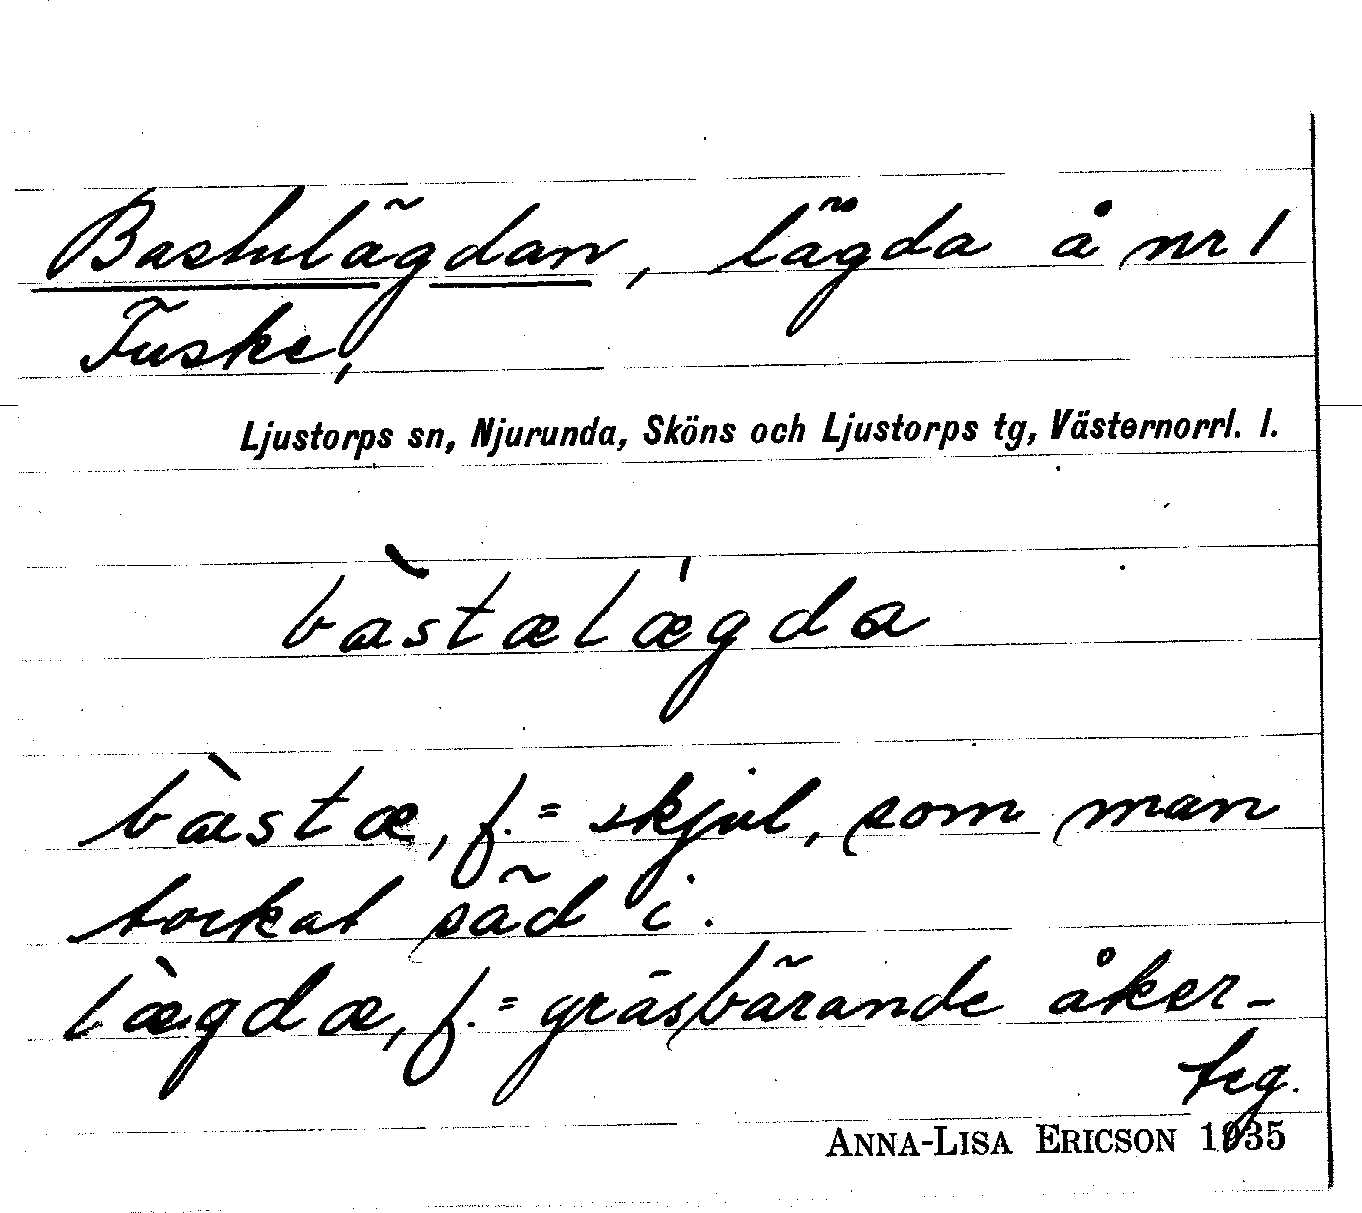 Bastulägdan, lägda å nr 1
Fuske,
Ljustorps sn, Njurunda, Sköns och Ljustorps tg, Västernorrl. l.
bàstælǽgda
bàstæ, f. = skjul, som man
torkat säd i.
læ̀gdæ, f. = gräsbärande åker-
teg.
ANNA-LISA ERICSON 1935